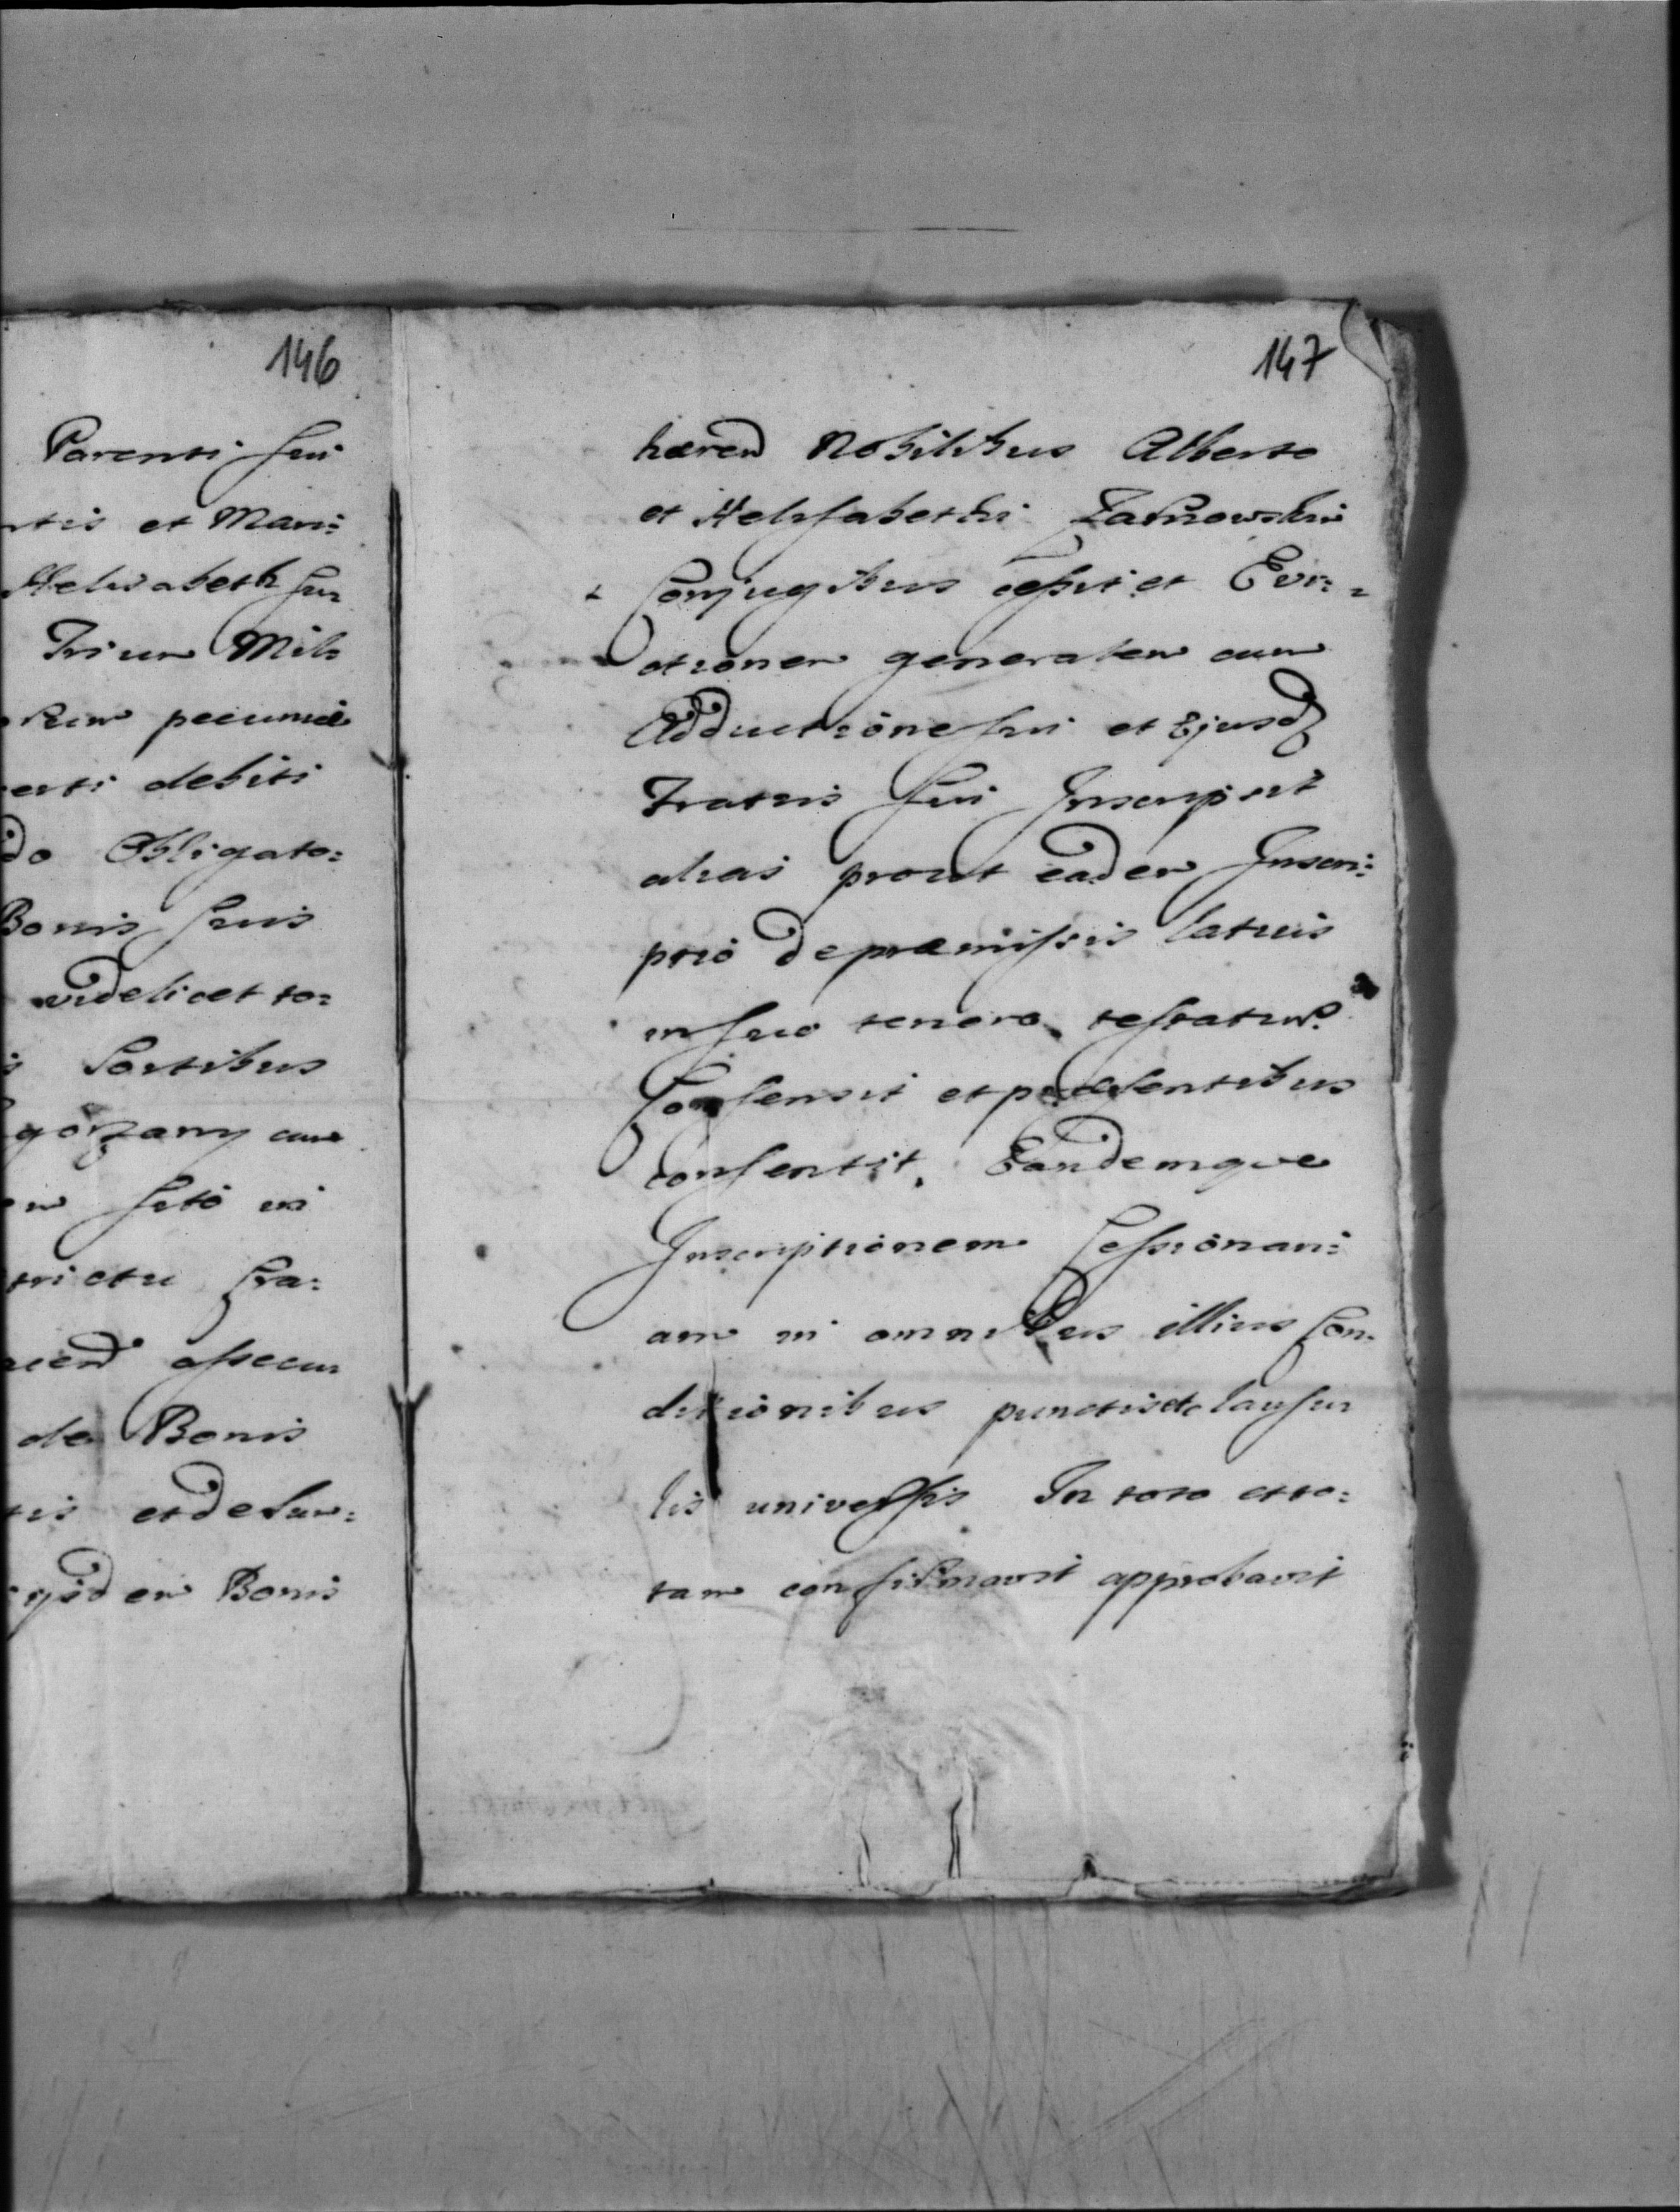 146
Parenti sui
ntis et Mari:
Helisabeth
Trium Mil:
pecuniae
debiti
do Obligato:
Bonis suis
videlicet to:
Sortibus
cum
sito in
trictu Cra:
assecu:
de Bonis
et de sum:
Bonis
147
haered Nobilibus Alberto
et Helisabethi Zarnowskie
Conjugibus cessit et Evi:
ctionem generalem cum
Adductione sui et Ejusd
Fratris sui Inscripsit
alias prout eadem Inscri:
ptio de praemissis latius
in suo tenore testatur
Consensit et praesentibus
consentit. Eandemque
Inscriptionem Cessionari:
am in omnibus illius Con:
ditionibus punctis et clausu:
lis universis In toto et to:
tam confirmavit approbavit